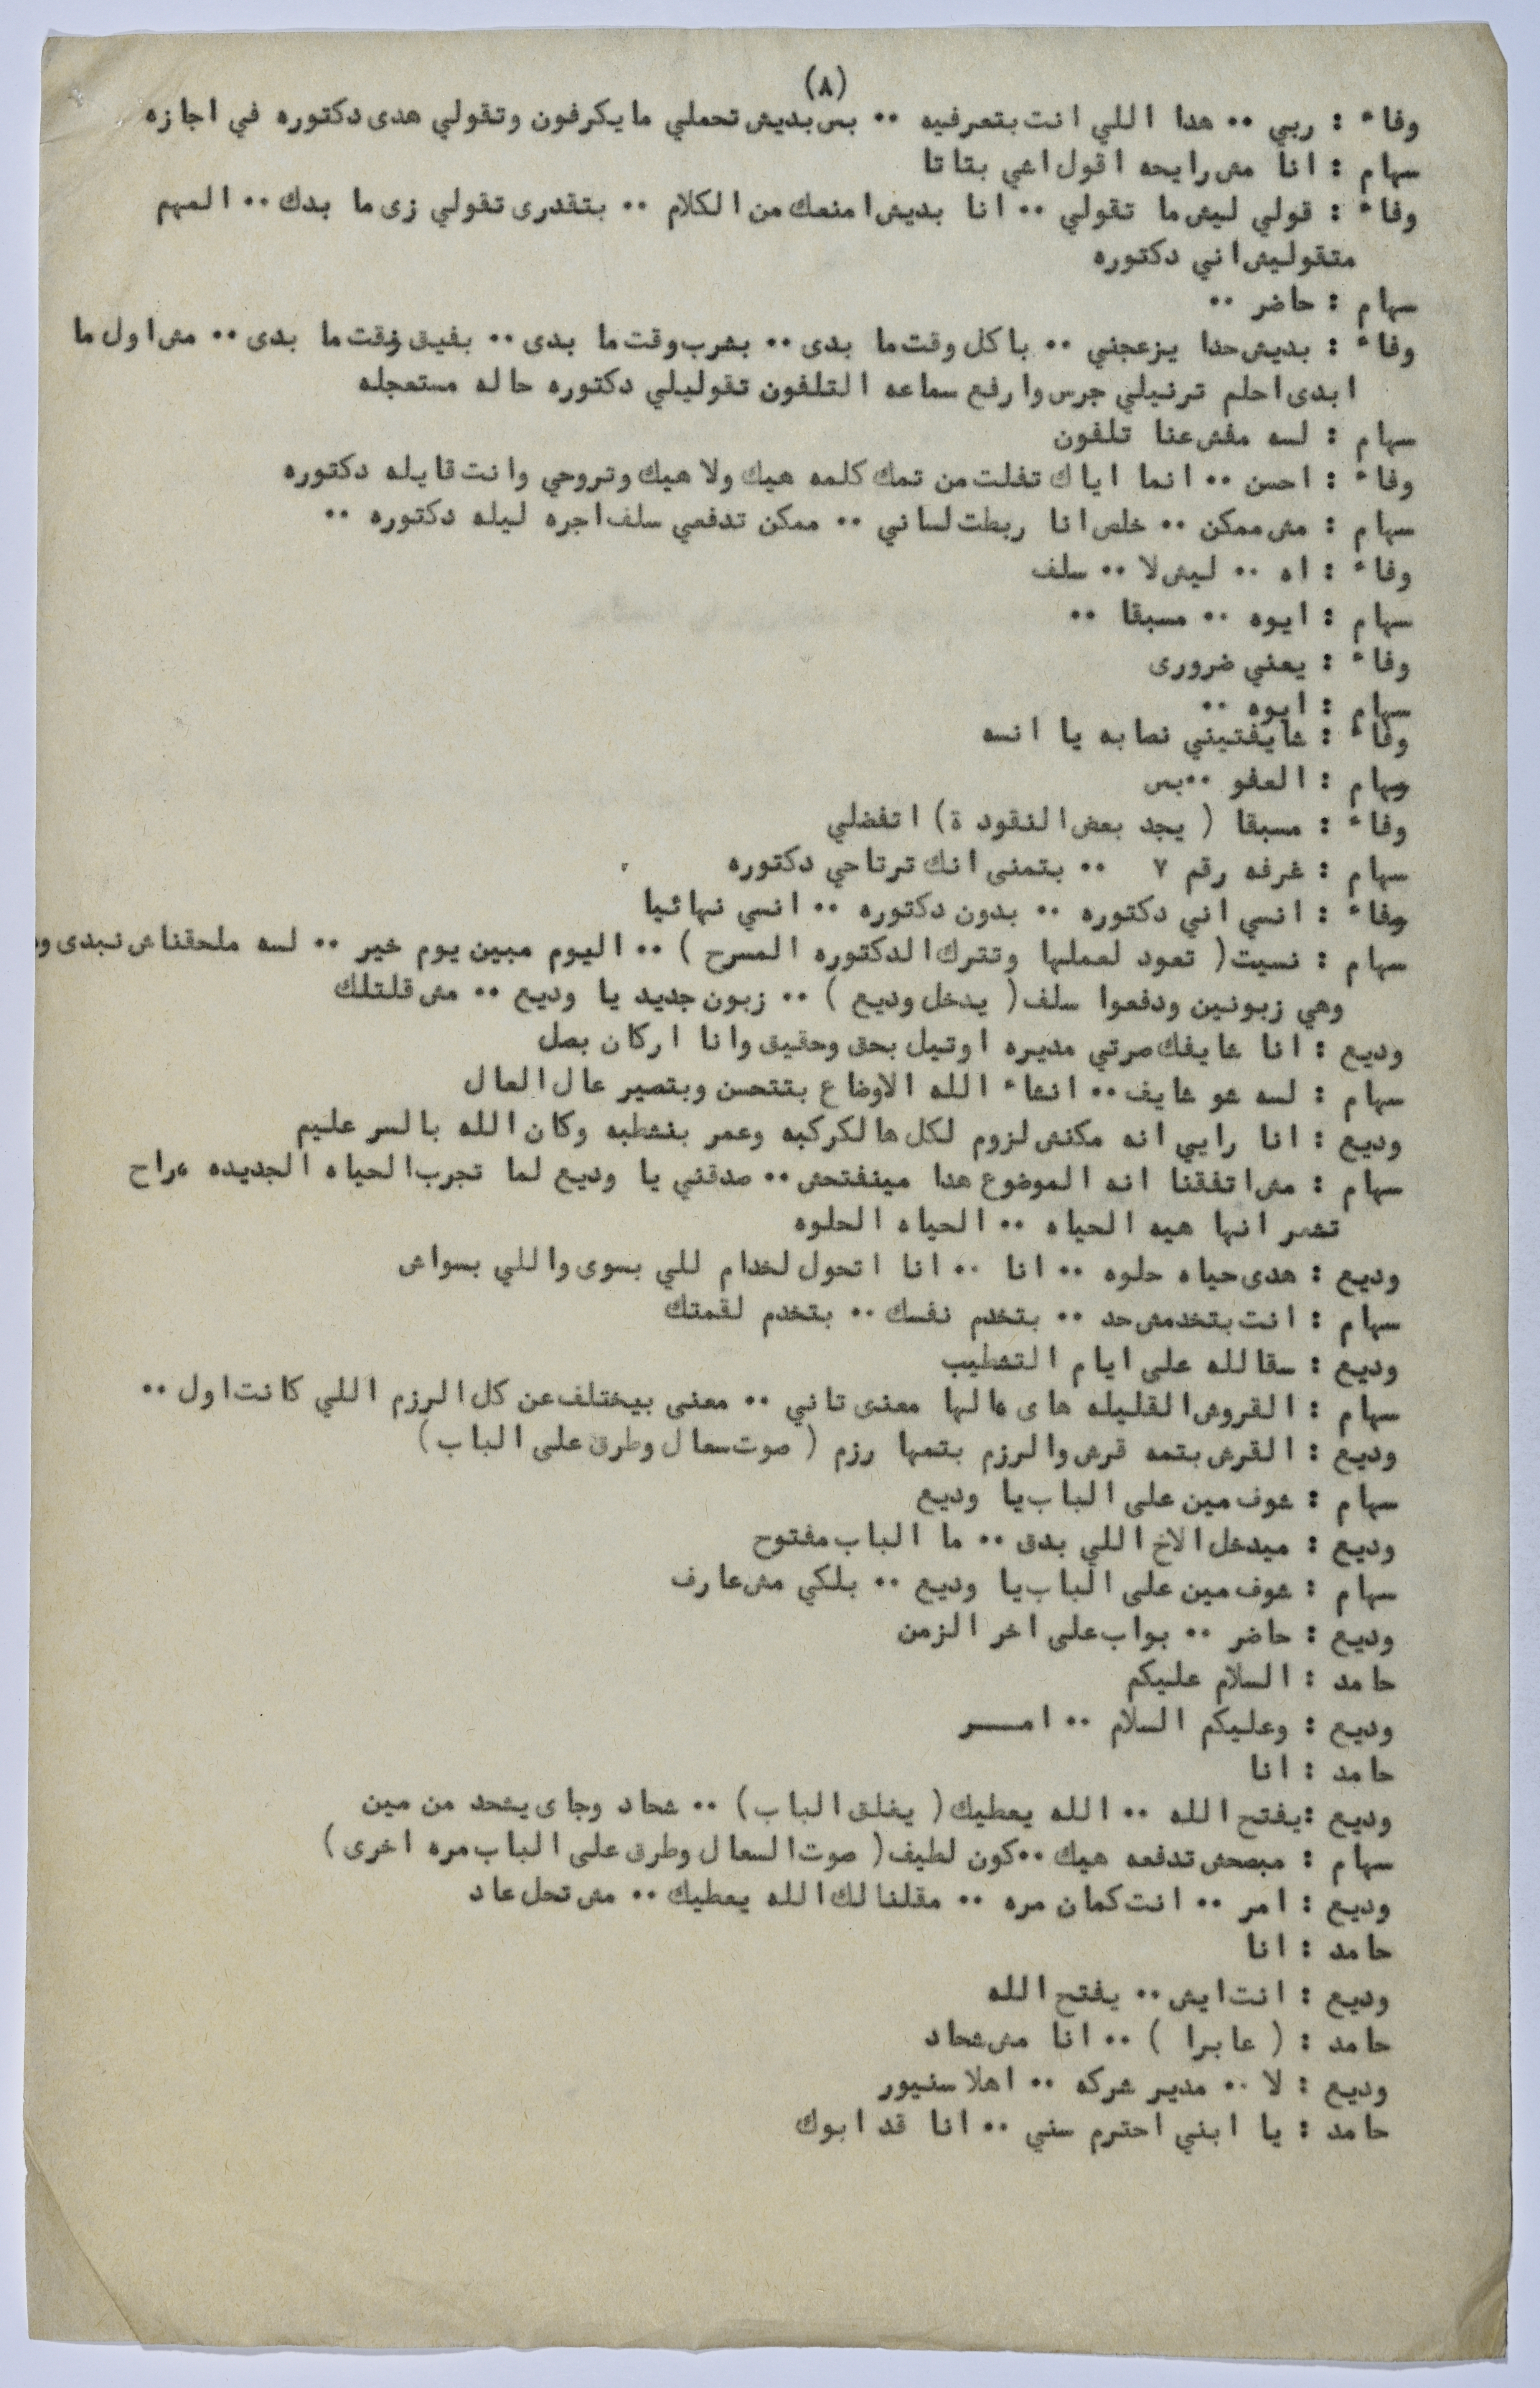 (٨)
وفاء : ربي .. هدا اللي انت بتعرفيه .. بس بديش تحملي مايكرفون وتقولي هدى دكتوره في اجازه
سهام : انا مش رايحه اقول اشي بتاتا
وفاء : قولي ليش ما تقولي .. انا بديش امنعك من الكلام .. بتقدرى تقولي زى ما بدك .. المهم
متقوليش اني دكتوره
سهام : حاضر ..
وفاء : بديش حدا يزعجني .. باكل وقت ما بدى .. بشرب وقت ما بدى .. بفيق وقت ما بدى .. مش اول ما
ابدى احلم ترنيلي جرس وارفع سماعه التلفون تقوليلي دكتوره حاله مستعجله
سهام : لسه مفش عنا تلفون
وفاء : احسن .. انما اياك تفلت من تمك كلمه هيك ولا هيك وتروحي وانت قايله دكتوره
سهام : مش ممكن .. خلص انا ربطت لساني .. ممكن تدفعي سلف اجره ليله دكتوره ..
وفاء : اه .. ليش لا .. سلف
سهام : ايوه .. مسبقا ..
وفاء : يعني ضرورى
سهام : ايوه ..
وفاء : شايفتيني نصابه يا انسه
سهام : العفو ..بس
وفاء : مسبقا ( يجد بعض النقود ة) اتفضلي
سهام : غرفه رقم ٧ .. بتمنى انك ترتاحي دكتوره
وفاء : انسي اني دكتوره .. بدون دكتوره .. انسي نهائيا
سهام : نسيت ( تعود لعملها وتترك الدكتوره المسرح ) .. اليوم مبين يوم خير .. لسه ملحقناش نبدى
وهي زبونين ودفعوا سلف ( يدخل وديع ) .. زبون جديد يا وديع .. مش قلتلك
وديع : انا شايفك صرتي مديره اوتيل بحق وحقيق وانا اركان بصل
سهام : لسه شو شايف .. انشاء الله الاوضاع بتتحسن وبتصير عال العال
وديع : انا رايي انه مكنش لزوم لكل هالكركبه وعمر بنشطبه وكان الله بالسر عليم
سهام : مش اتفقنا انه الموضوع هدا مينفتحش .. صدقني يا وديع لما تجرب الحياه الجديده راح
تشعر انها هيه الحياه .. الحياه الحلوه
وديع : هدى حياه حلوه .. انا .. انا اتحول لخدام للي بسوى واللي بسواش
سهام : انت بتخدمش حد .. بتخدم نفسك .. بتخدم لقمتك
وديع : سقالله على ايام التشطيب
سهام : القروش القليله هاى الها معنى تاني .. معنى بيختلف عن كل الرزم اللي كانت اول ..
وديع : القرش بتمه قرش والرزم بتمها رزم ( صوت سعال وطرق على الباب )
سهام : شوف مين على الباب يا وديع
وديع : ميدخل الاخ اللي بدق .. ما الباب مفتوح
سهام : شوف مين على الباب يا وديع .. بلكي مش عارف
وديع : حاضر .. بواب على اخر الزمن
حامد : السلام عليكم
وديع : وعليكم السلام .. امـــر
حامد : انا
وديع :يفتح الله .. الله يعطيك ( يغلق الباب ) .. شحاد وجاى يشحد من مين
سهام : مبصحش تدفعه هيك ..كون لطيف ( صوت السعال وطرق على الباب مره اخرى )
وديع : امر .. انت كمان مره .. مقلنالك الله يعطيك .. مش تحل عاد
حامد : انا
وديع : انت ايش .. يفتح الله
حامد : ( عابرا ) .. انا مش شحاد
وديع : لا .. مدير شركه .. اهلا سنيور
حامد : يا ابني احترم سني .. انا قد ابوك